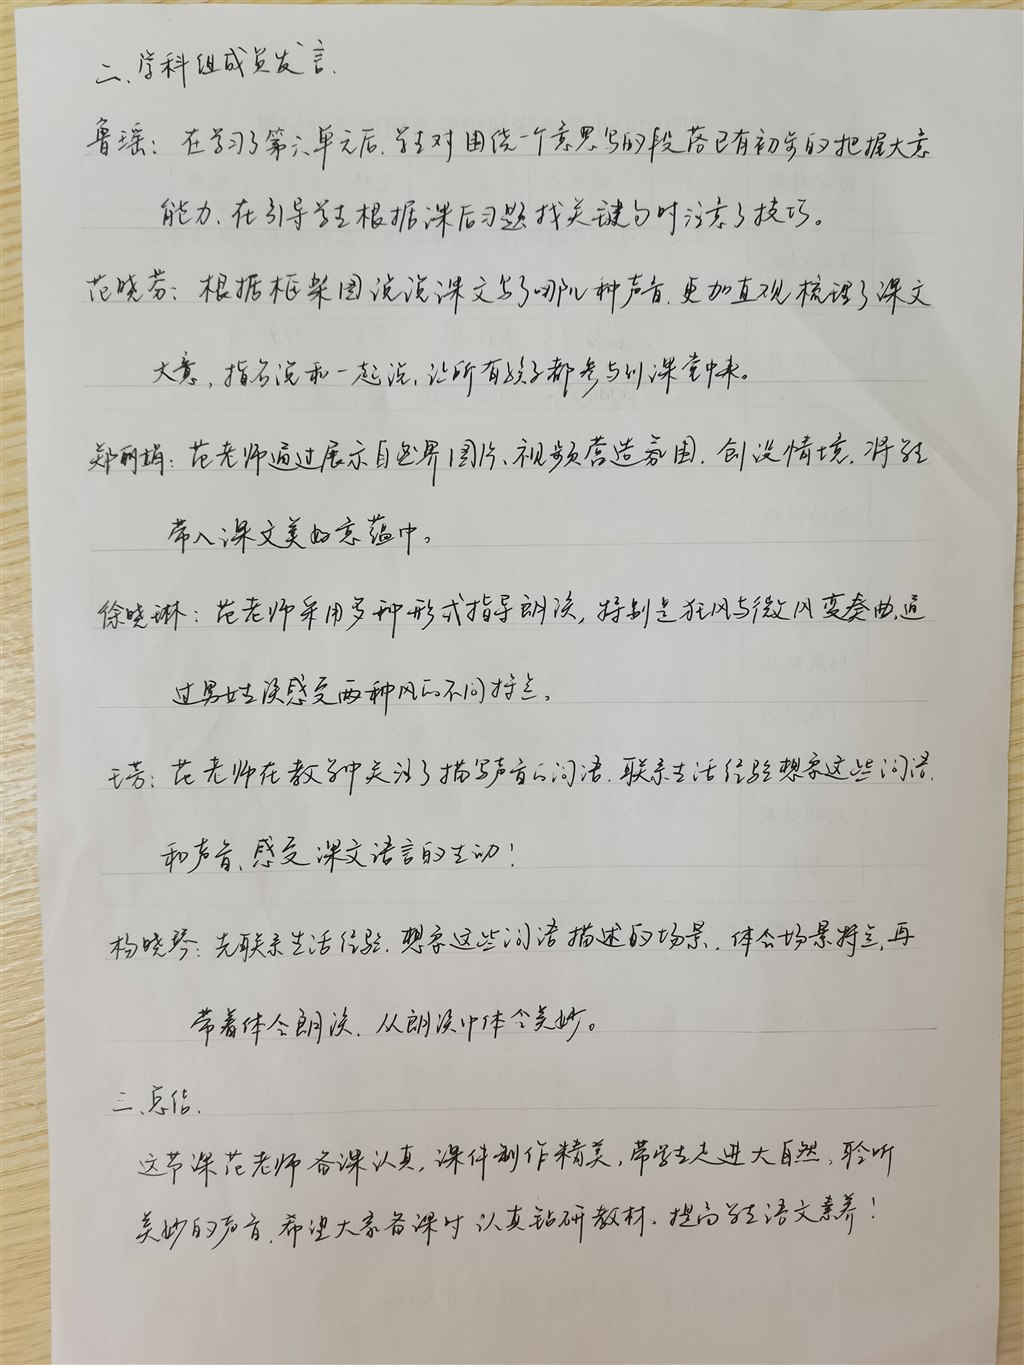 二、学科组成员发言.
鲁瑶：在学习了第六单元后,学生对围绕一个意思写的段落已有初步的把握大意
能力、在引导学生根据课后习题找关键句时注意了技巧。
范晓芬：根据框架图说说课文写了哪几种声音,更加直观梳理了课文
大意，指名说和一起说,让所有孩子都参与到课堂中来。
郑丽娟：范老师通过展示自然界图片、视频营造氛围.创设情境.将学生
带入课文美好意蕴中。
徐晓琳：范老师采用多种形式指导朗读，特别是狂风与微风变奏曲,通
过男女生读感受两种风的不同特点。
王芳：范老师在教学中关注了描写声音的词语.联系生活经验想象这些词语
和声音、感受课文语言的生动！
杨晓琴：先联系生活经验.想象这些词语描述的场景.体会场景特点,再
带着体会朗读.从朗读中体会美妙。
三、总结.
这节课范老师备课认真,课件制作精美，带学生走进大自然、聆听
美妙的声音.希望大家备课时认真钻研教材.提高学生语文素养！